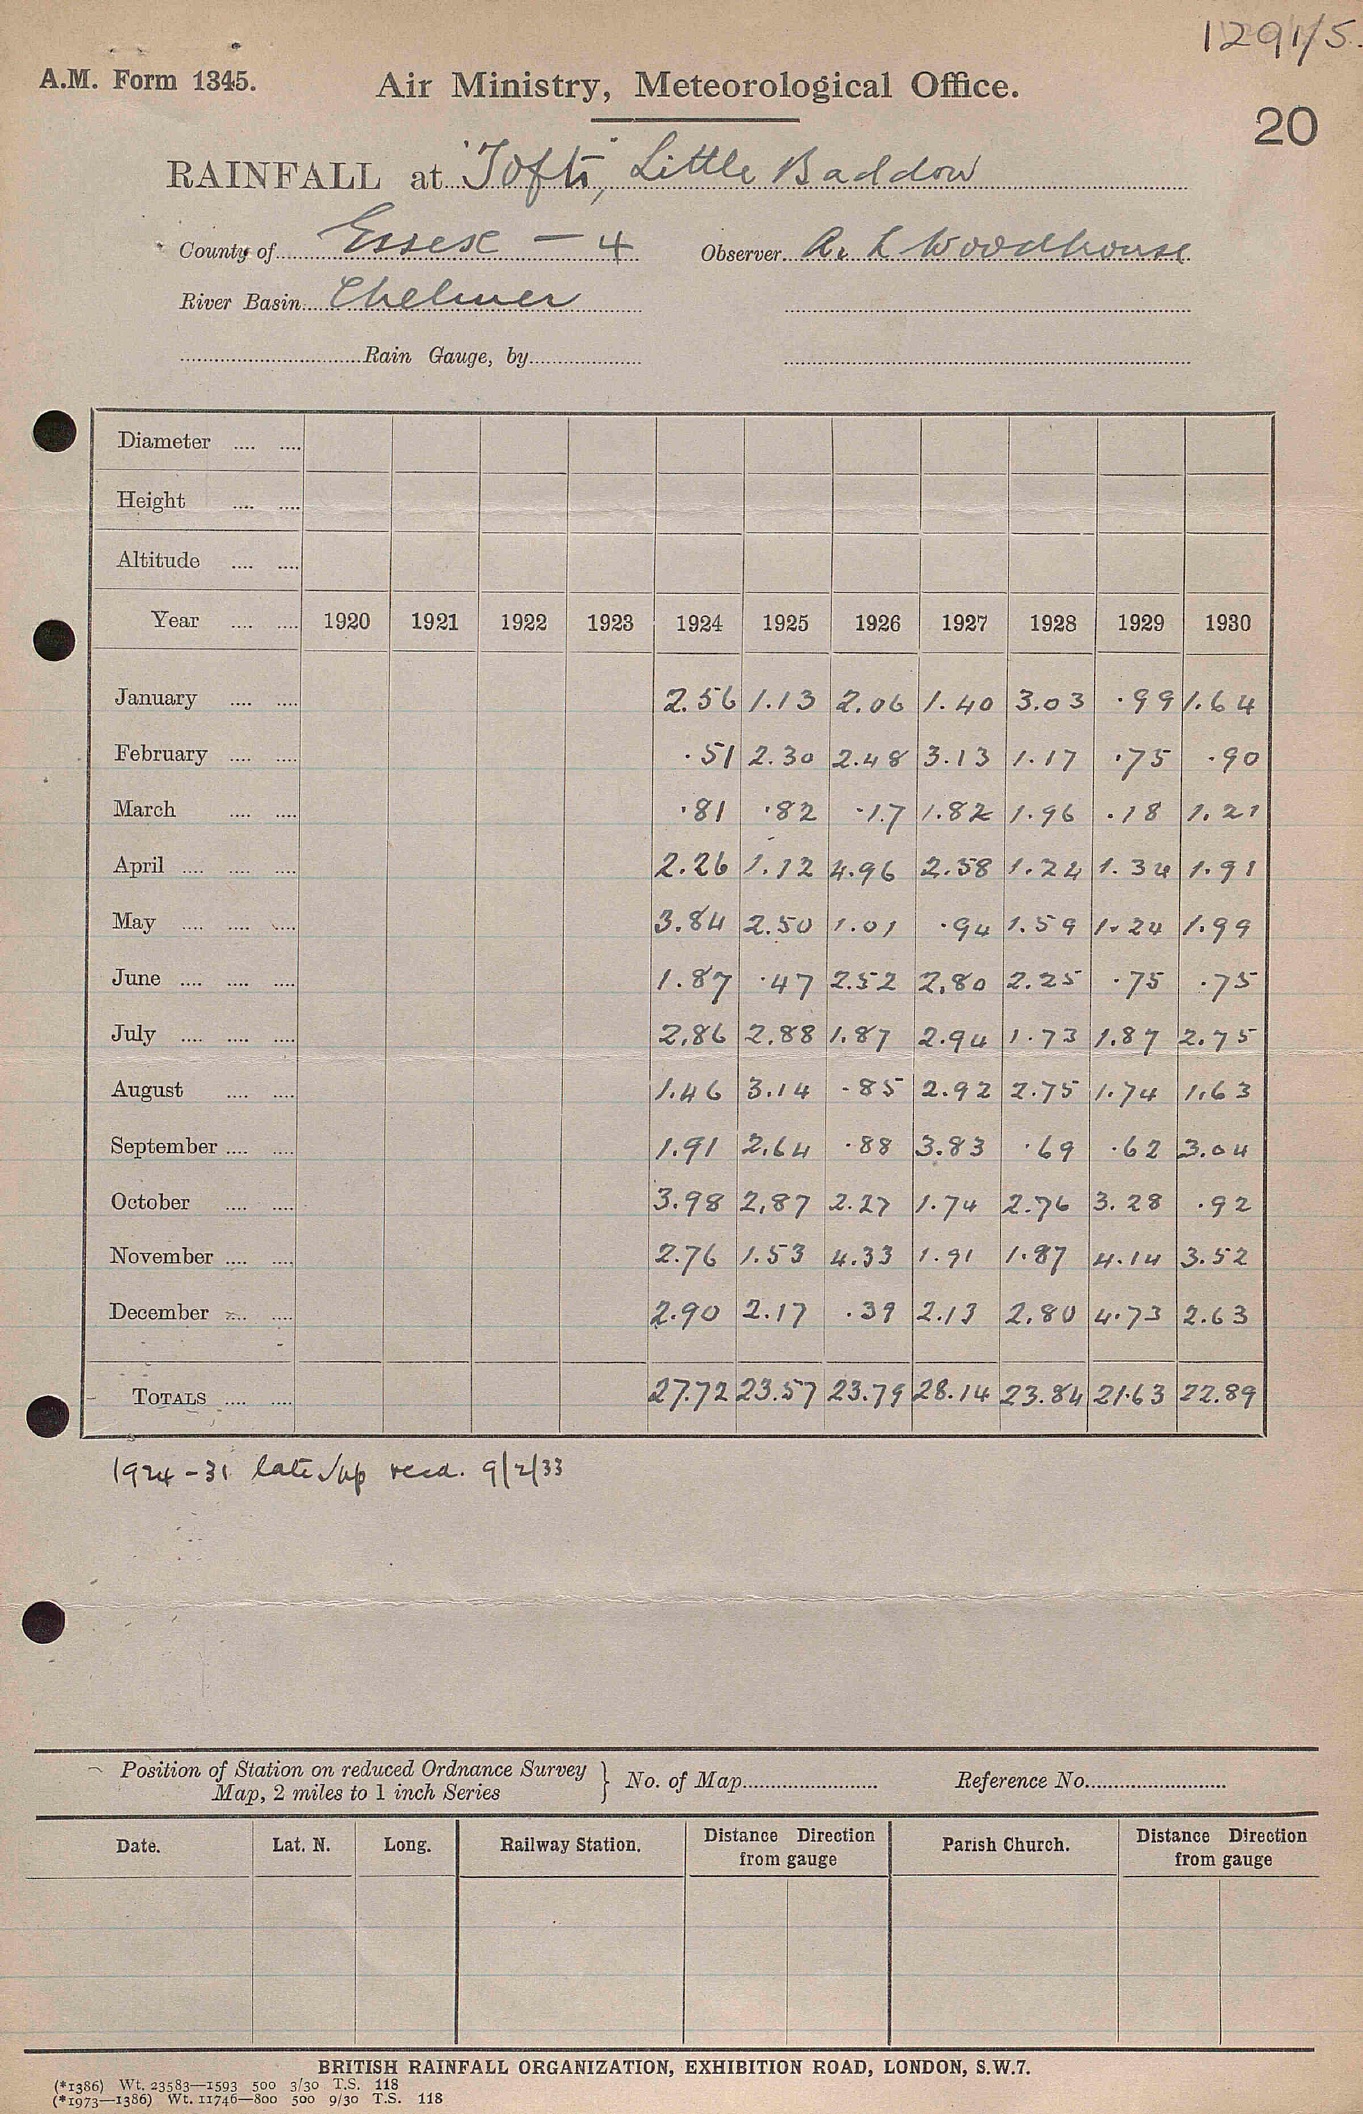 1291/5.
A.M. Form 1345. Air Ministry, Meteorological Office.
20
RAINFALL at "Tofts", Little Baddow
County of Essex — 4 Observer A. L Woodhouse
River Basin Chelmer
Rain Gauge, by
Diameter
Height
Altitude
Year 1920 1921 1922 1923 1924 1925 1926 1927 1928 1929 1930
January 2.56 1.13 2.06 1.40 3.03 .99 1.64
February .51 2.30 2.48 3.13 1.17 .75 .90
March .81 .82 .17 1.82 1.96 .18 1.21
April 2.26 1.12 4.96 2.58 1.24 1.34 1.91
May 3.84 2.50 1.01 .94 1.59 1.24 1.99
June 1.87 .47 2.52 2.80 2.25 .75 .75
July 2.86 2.88 1.87 2.94 1.73 1.87 2.75
August 1.46 3.14 .85 2.92 2.75 1.74 1.63
September 1.91 2.64 .88 3.83 .69 .62 3.04
October 3.98 2.87 2.27 1.74 2.76 3.28 .92
November 2.76 1.53 4.33 1.91 1.87 4.14 3.52
December 2.90 2.17 .39 2.13 2.80 4.73 2.63
TOTALS 27.72 23.57 23.79 28.14 23.84 21.63 22.89
1924-31 late recd. 9/2/33
Position of Station on reduced Ordnance Survey
Map, 2 miles to 1 inch Series } No. of Map Reference No.
Date. Lat. N. Long. Railway Station. Distance Direction from gauge Parish Church. Distance Direction from gauge
BRITISH RAINFALL ORGANIZATION, EXHIBITION ROAD, LONDON, S.W.7.
(*1386) Wt. 23583—1593 500 3/30 T.S. 118
(*1973—1386) Wt. 11746—800 500 9/30 T.S. 118